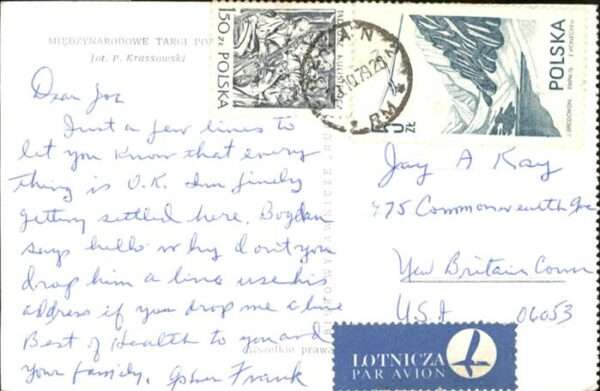 MIĘDZYNARODOWE TARGI POZ
fot. P. Krassowski
Dear Joe
Just a few lines to
let you know that every
thing is O.K. Im finely
getting settled here. Bogdan
says hello why dont you
drop him a line use his
address if you drop me a line
Best of Health to you and
your family. Frank
wszelkie prawa
1.50 zł
POLSKA
POZNAŃ
POLSKA
zł
Jay A Kay
475 Commonwealth Ave
New Britain Conn
USA 06053
LOTNICZA
PAR AVION